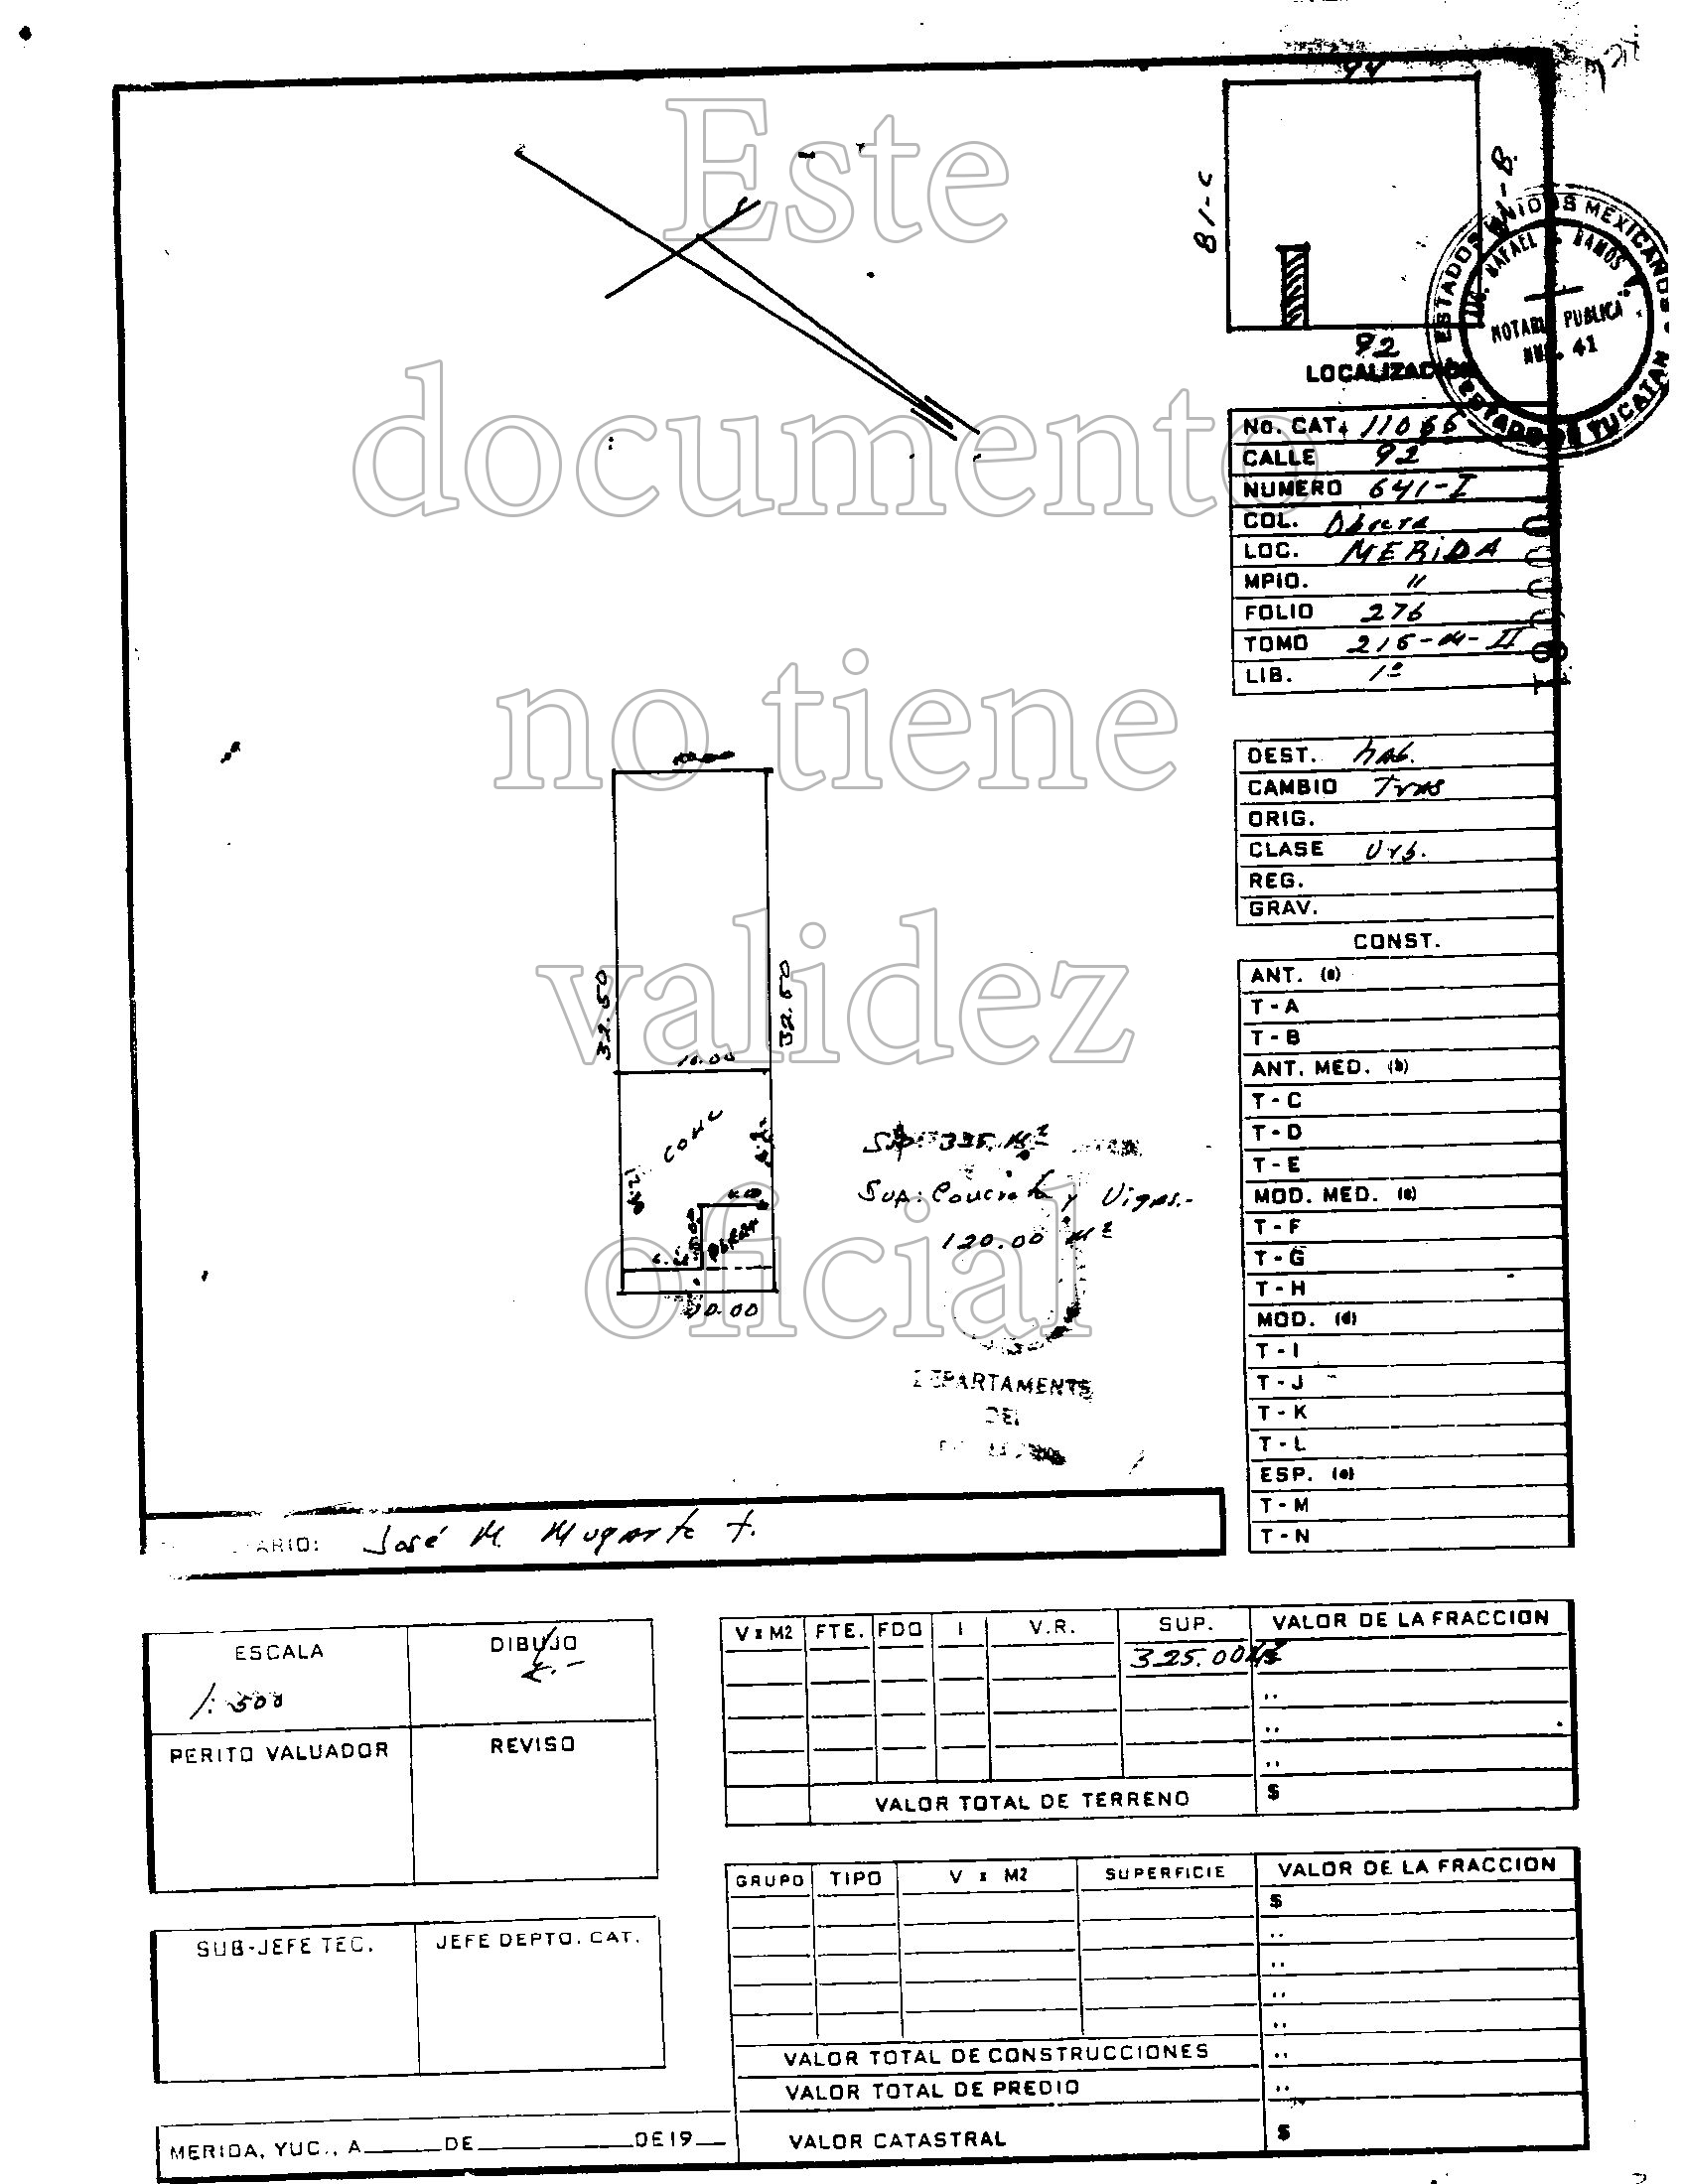 Este
documento
no tiene
validez
oficial
94
81-C
92
LOCALIZACION
ESTADOS UNIDOS MEXICANOS
LIC. RAFAEL RAMOS
NOTARIA PUBLICA
NUM. 41
ESTADO DE YUCATAN
No. CAT. 11066
CALLE 92
NUMERO 641-I
COL. Obrera
LOC. MERIDA
MPIO. "
FOLIO 276
TOMO 216-M-II
LIB. 1º
DEST. hab.
CAMBIO Tras
ORIG.
CLASE Urb.
REG.
GRAV.
CONST.
ANT. (a)
T-A
T-B
ANT. MED. (b)
T-C
T-D
T-E
MOD. MED. (c)
T-F
T-G
T-H
MOD. (d)
T-I
T-J
T-K
T-L
ESP. (e)
T-M
T-N
32.50
32.50
10.00
CONC
10.00
Sup: 325. M²
Sup: Concreto y Vigas.-
120.00 M²
DEPARTAMENTO
DEL
ARIO: José M. Mugarte t.
ESCALA
1:500
DIBUJO
PERITO VALUADOR
REVISO
SUB-JEFE TEC.
JEFE DEPTO. CAT.
MERIDA, YUC., A DE DE19
V x M2 FTE. FDO I V.R. SUP. VALOR DE LA FRACCION
325.00 M²
VALOR TOTAL DE TERRENO $
GRUPO TIPO V x M2 SUPERFICIE VALOR DE LA FRACCION
$
VALOR TOTAL DE CONSTRUCCIONES
VALOR TOTAL DE PREDIO
VALOR CATASTRAL $